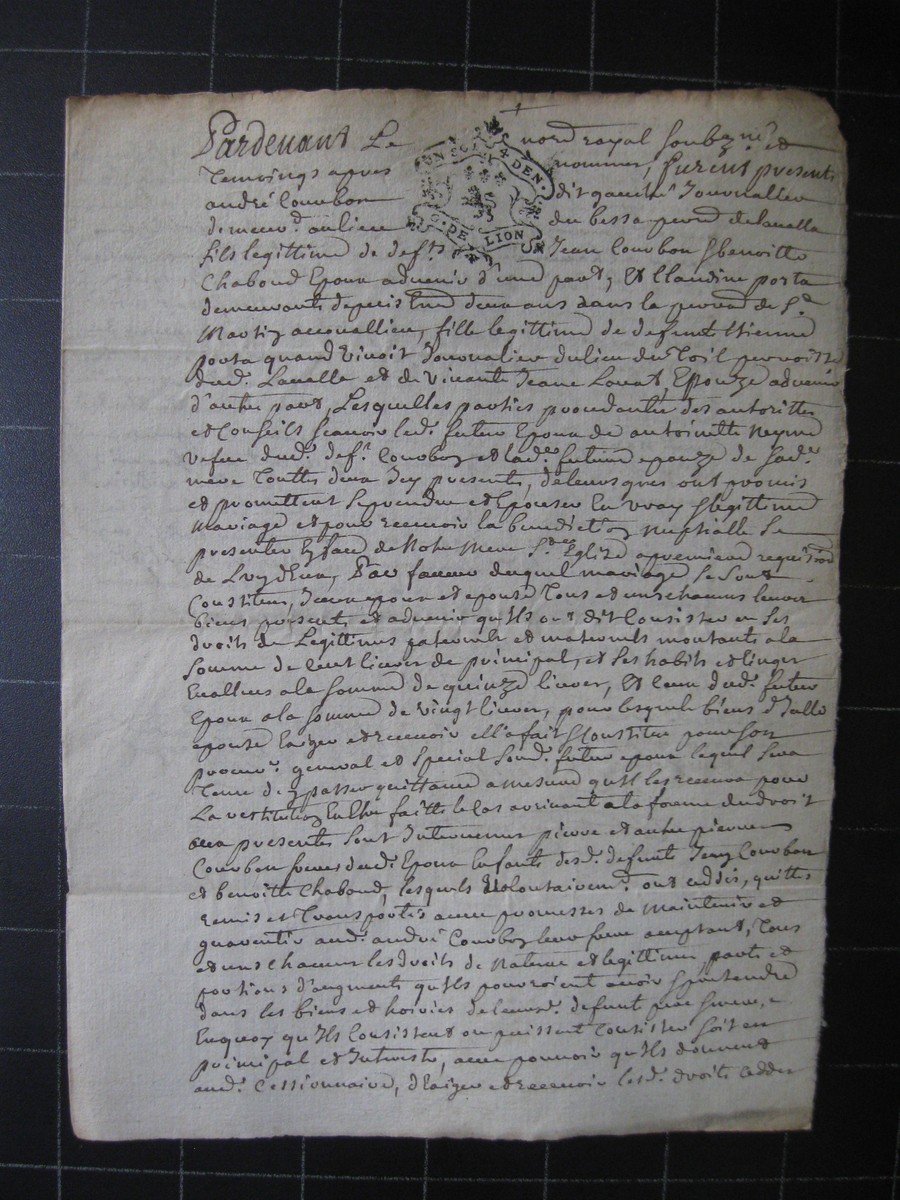 Pardevant Le nore royal soubzne. et
Temoings apres nommes, furent presents
andré Courbon dit gauche. Journallier
demeurt. au lieu du bessa parre. de lavalla
fils legittime de deft. Jean Courbon & benoitte
Chaboud Epoux advenir d'une part, Et Claudine porta
demeurante depuis Env. deux ans dans la parre. de St.
Martin acouallieu, fille legittime de defunt Etienne
porta quand vivoit Journalier du lieu du Toil parroisse
dud. Lavalla et de vivante Jeane Lovat, Epouze advenir
d'autre part, Lesquelles parties procedantes des autorittes
et Conseils scavoir led. futur Epoux de antoinette Neyme
vefue dud. deft. Courbon et lad. future epouze de sad.
mere Touttes deux Icy presentes, de leurs gres ont promis
et promettent se prendre et Epouser En vray & legittime
Mariage et pour recevoir la benediction Nuptialle Se
presenter En face de Notre Mere Ste. Eglize a premiere requisition
de Luy d'Eux, Par faveur duquel mariage se sont
Constitues, Iceux epoux et epouse Tous et uns chacuns leurs
biens presents et advenir qu'Ils ont dit Consister en ses
droits de Legittimes paternels et maternels montants a la
Somme de Cent livres de principal, et ses habits et linges
Evallues a la Somme de quinze livres, Et Ceux dud. futur
Epoux a la somme de vingt livres, pour lesquels biens d'Jcelle
epouse Exiger et recevoir elle a fait & Constitue pour son
procur. general et special sond. futur epoux lequel sera
Tenu d'En passer quittance a mesure qu'Il les recevra pour
La restitution En Etre faitte le Cas arrivant a la forme du droit
aux presentes sont Intervenus pierre et autre pierre
Courbon freres dud. Epoux Enfants desd. defunts Jean Courbon
et benoitte Chaboud, lesquels volontairemt. ont ceddés, quittes
remis et Transportés avec promesses de Maintenir et
guarentir aud. andré Courbon leur frere acceptant, Tous
et uns chacuns les droits de Nature et legittime, parts et
portions d'augments qu'Ils pourroient avoir & pretendre
dans les biens et hoiries de leursd. defunt pere & mere,
En quoy qu'Ils Consistent ou puissent Consister soit en
principal et Interets, avec pouvoir qu'Ils donnent
aud. Cessionnaire, d'Exiger et recevoir lesd. droits Ceddes
UN S DEN.
G. DE LION